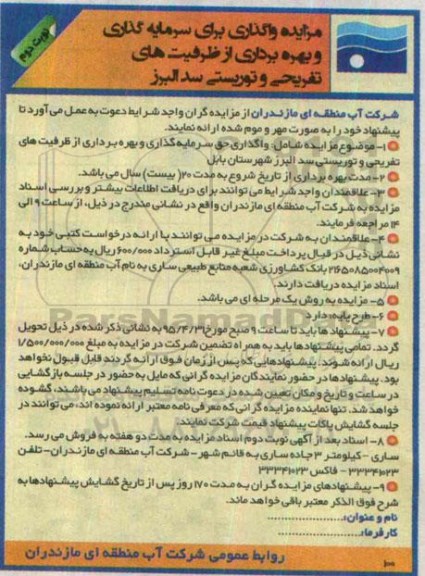 نوبت دوم
مزایده واگذاری برای سرمایه گذاری
و بهره برداری از ظرفیت های
تفریحی و توریستی سد البرز
شرکت آب منطقه ای مازندران از مزایده گران واجد شرایط دعوت به عمل می آورد تا
پیشنهاد خود را به صورت مهر و موم شده ارائه نمایند.
۱- موضوع مزایده شامل: واگذاری حق سرمایه گذاری و بهره برداری از ظرفیت های
تفریحی و توریستی سد البرز شهرستان بابل
۲- مدت بهره برداری از تاریخ شروع به مدت ۲۰( بیست) سال می باشد.
۳- علاقمندان واجد شرایط می توانند برای دریافت اطلاعات بیشتر و بررسی اسناد
مزایده به شرکت آب منطقه ای مازندران واقع در نشانی مندرج در ذیل، از ساعت ۹ الی
۱۴ مراجعه فرمایند.
۴- علاقمندان به شرکت در مزایده می توانند با ارائه درخواست کتبی خود به
نشانی ذیل در قبال پرداخت مبلغ غیر قابل استرداد ۶۰۰/۰۰۰ ریال به حساب شماره
۲۱۶۵۰۸۵۰۰۴۰۰۹ بانک کشاورزی شعبه منابع طبیعی ساری به نام آب منطقه ای مازندران،
اسناد مزایده دریافت دارند.
۵- مزایده به روش یک مرحله ای می باشد.
۶- طرح پایه: دارد
۷- پیشنهاد ها باید تا ساعت ۹ صبح مورخ ۹۵/۴/۲۳ به نشانی ذکر شده در ذیل تحویل
گردد. تمامی پیشنهادها باید به همراه تضمین شرکت در مزایده به مبلغ ۱/۵۰۰/۰۰۰/۰۰۰
ریال ارائه شوند. پیشنهادهایی که پس از زمان فوق ارائه گردند قابل قبول نخواهد
بود. پیشنهادها در حضور نمایندگان مزایده گرانی که مایل به حضور در جلسه بازگشایی
در ساعت و تاریخ و مکان تعیین شده در دعوت نامه تسلیم پیشنهاد می باشند، گشوده
خواهد شد. تنها نماینده مزایده گرانی که معرفی نامه معتبر ارائه نموده اند، می توانند در
جلسه گشایش پاکات پیشنهاد قیمت شرکت نمایند
۸- اسناد بعد از آگهی نوبت دوم اسناد مزایده به مدت دو هفته به فروش می رسد.
ساری - کیلومتر ۳ جاده ساری به قائم شهر - شرکت آب منطقه ای مازندران - تلفن
۳۳۳۴۱۰۲۳ - فاکس ۳۳۳۴۱۰۲۳
۹- پیشنهادهای مزایده گران به مدت ۱۷۰ روز پس از تاریخ گشایش پیشنهادها به
شرح فوق الذکر معتبر باقی خواهد ماند.
نام و عنوان:......................
کارفرما:......................
روابط عمومی شرکت آب منطقه ای مازندران
۱۰۰